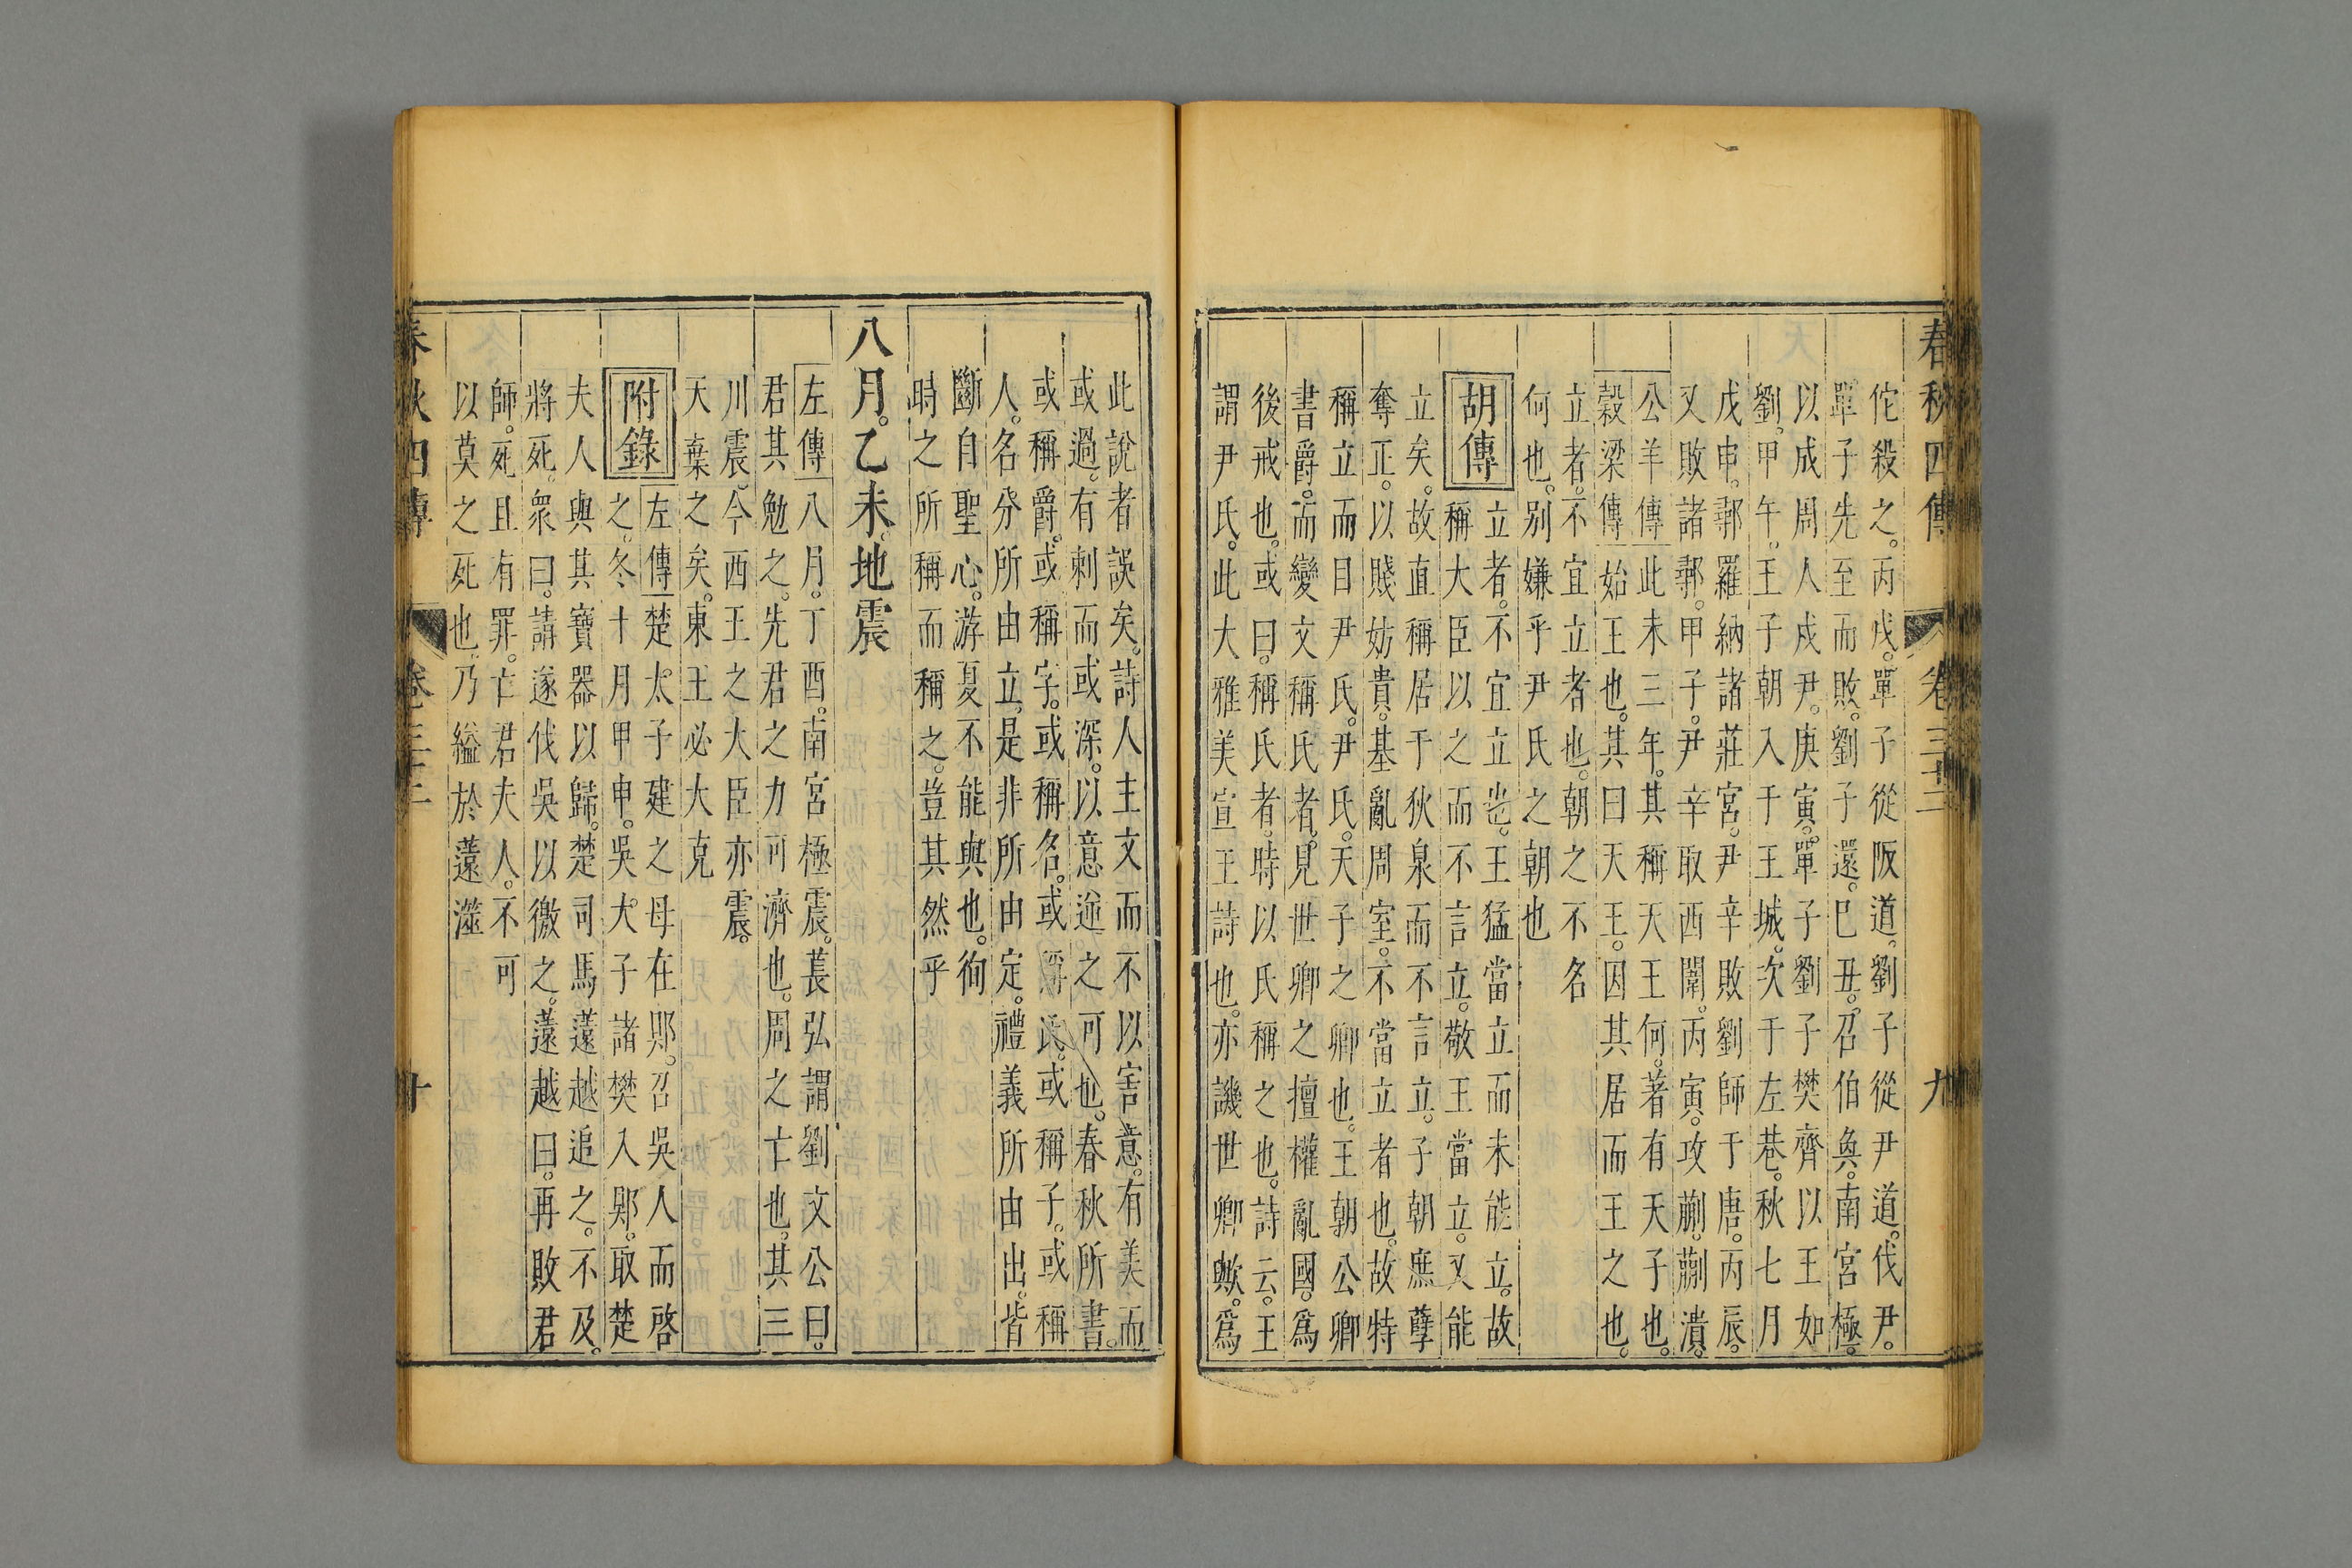 春秋四傳 卷三十二 九
佗殺之。丙戌。單子從阪道。劉子從尹道。伐尹。
單子先至而敗。劉子還。巳丑。召伯奐。南宮極。
以成周人戍尹。庚寅。單子劉子樊齊以王如
劉。甲午。王子朝入于王城。次于左巷。秋七月
戊申。鄩羅納諸莊宮。尹辛敗劉師于唐。丙辰。
又敗諸鄩。甲子。尹辛取西闈。丙寅。攻蒯。蒯潰。
公羊傳 此未三年。其稱天王何。著有天子也。
穀梁傳 始王也。其曰天王。因其居而王之也。
立者。不宜立者也。朝之不名
何也。別嫌乎尹氏之朝也
胡傳 立者。不宜立也。王猛當立而未能立。故
稱大臣以之而不言立。敬王當立。又能
立矣。故直稱居于狄泉而不言立。子朝庶孽
奪正。以賤妨貴。基亂周室。不當立者也。故特
稱立而目尹氏。尹氏。天子之卿也。王朝公卿
書爵。而變文稱氏者。見世卿之擅權亂國。爲
後戒也。或曰。稱氏者。時以氏稱之也。詩云。王
謂尹氏。此大雅美宣王詩也。亦譏世卿歟。爲
此說者誤矣。詩人主文而不以害意。有美而
或過。有刺而或深。以意逆之可也。春秋所書。
或稱爵。或稱字。或稱名。或稱氏。或稱子。或稱
人。名分所由立。是非所由定。禮義所由出。皆
斷自聖心。游夏不能與也。徇
時之所稱而稱之。豈其然乎
八月。乙未。地震
左傳 八月。丁酉。南宮極震。萇弘謂劉文公曰。
君其勉之。先君之力可濟也。周之亡也。其三
川震。今西王之大臣亦震。
天棄之矣。東王必大克
附錄 左傳 楚太子建之母在郹。召吳人而啓
之。冬十月甲申。吳大子諸樊入郹。取楚
夫人與其寶器以歸。楚司馬薳越追之。不及。
將死。衆曰。請遂伐吳以徼之。薳越曰。再敗君
師。死且有罪。亡君夫人。不可
以莫之死也。乃縊於薳澨
春秋四傳 卷三十二 十